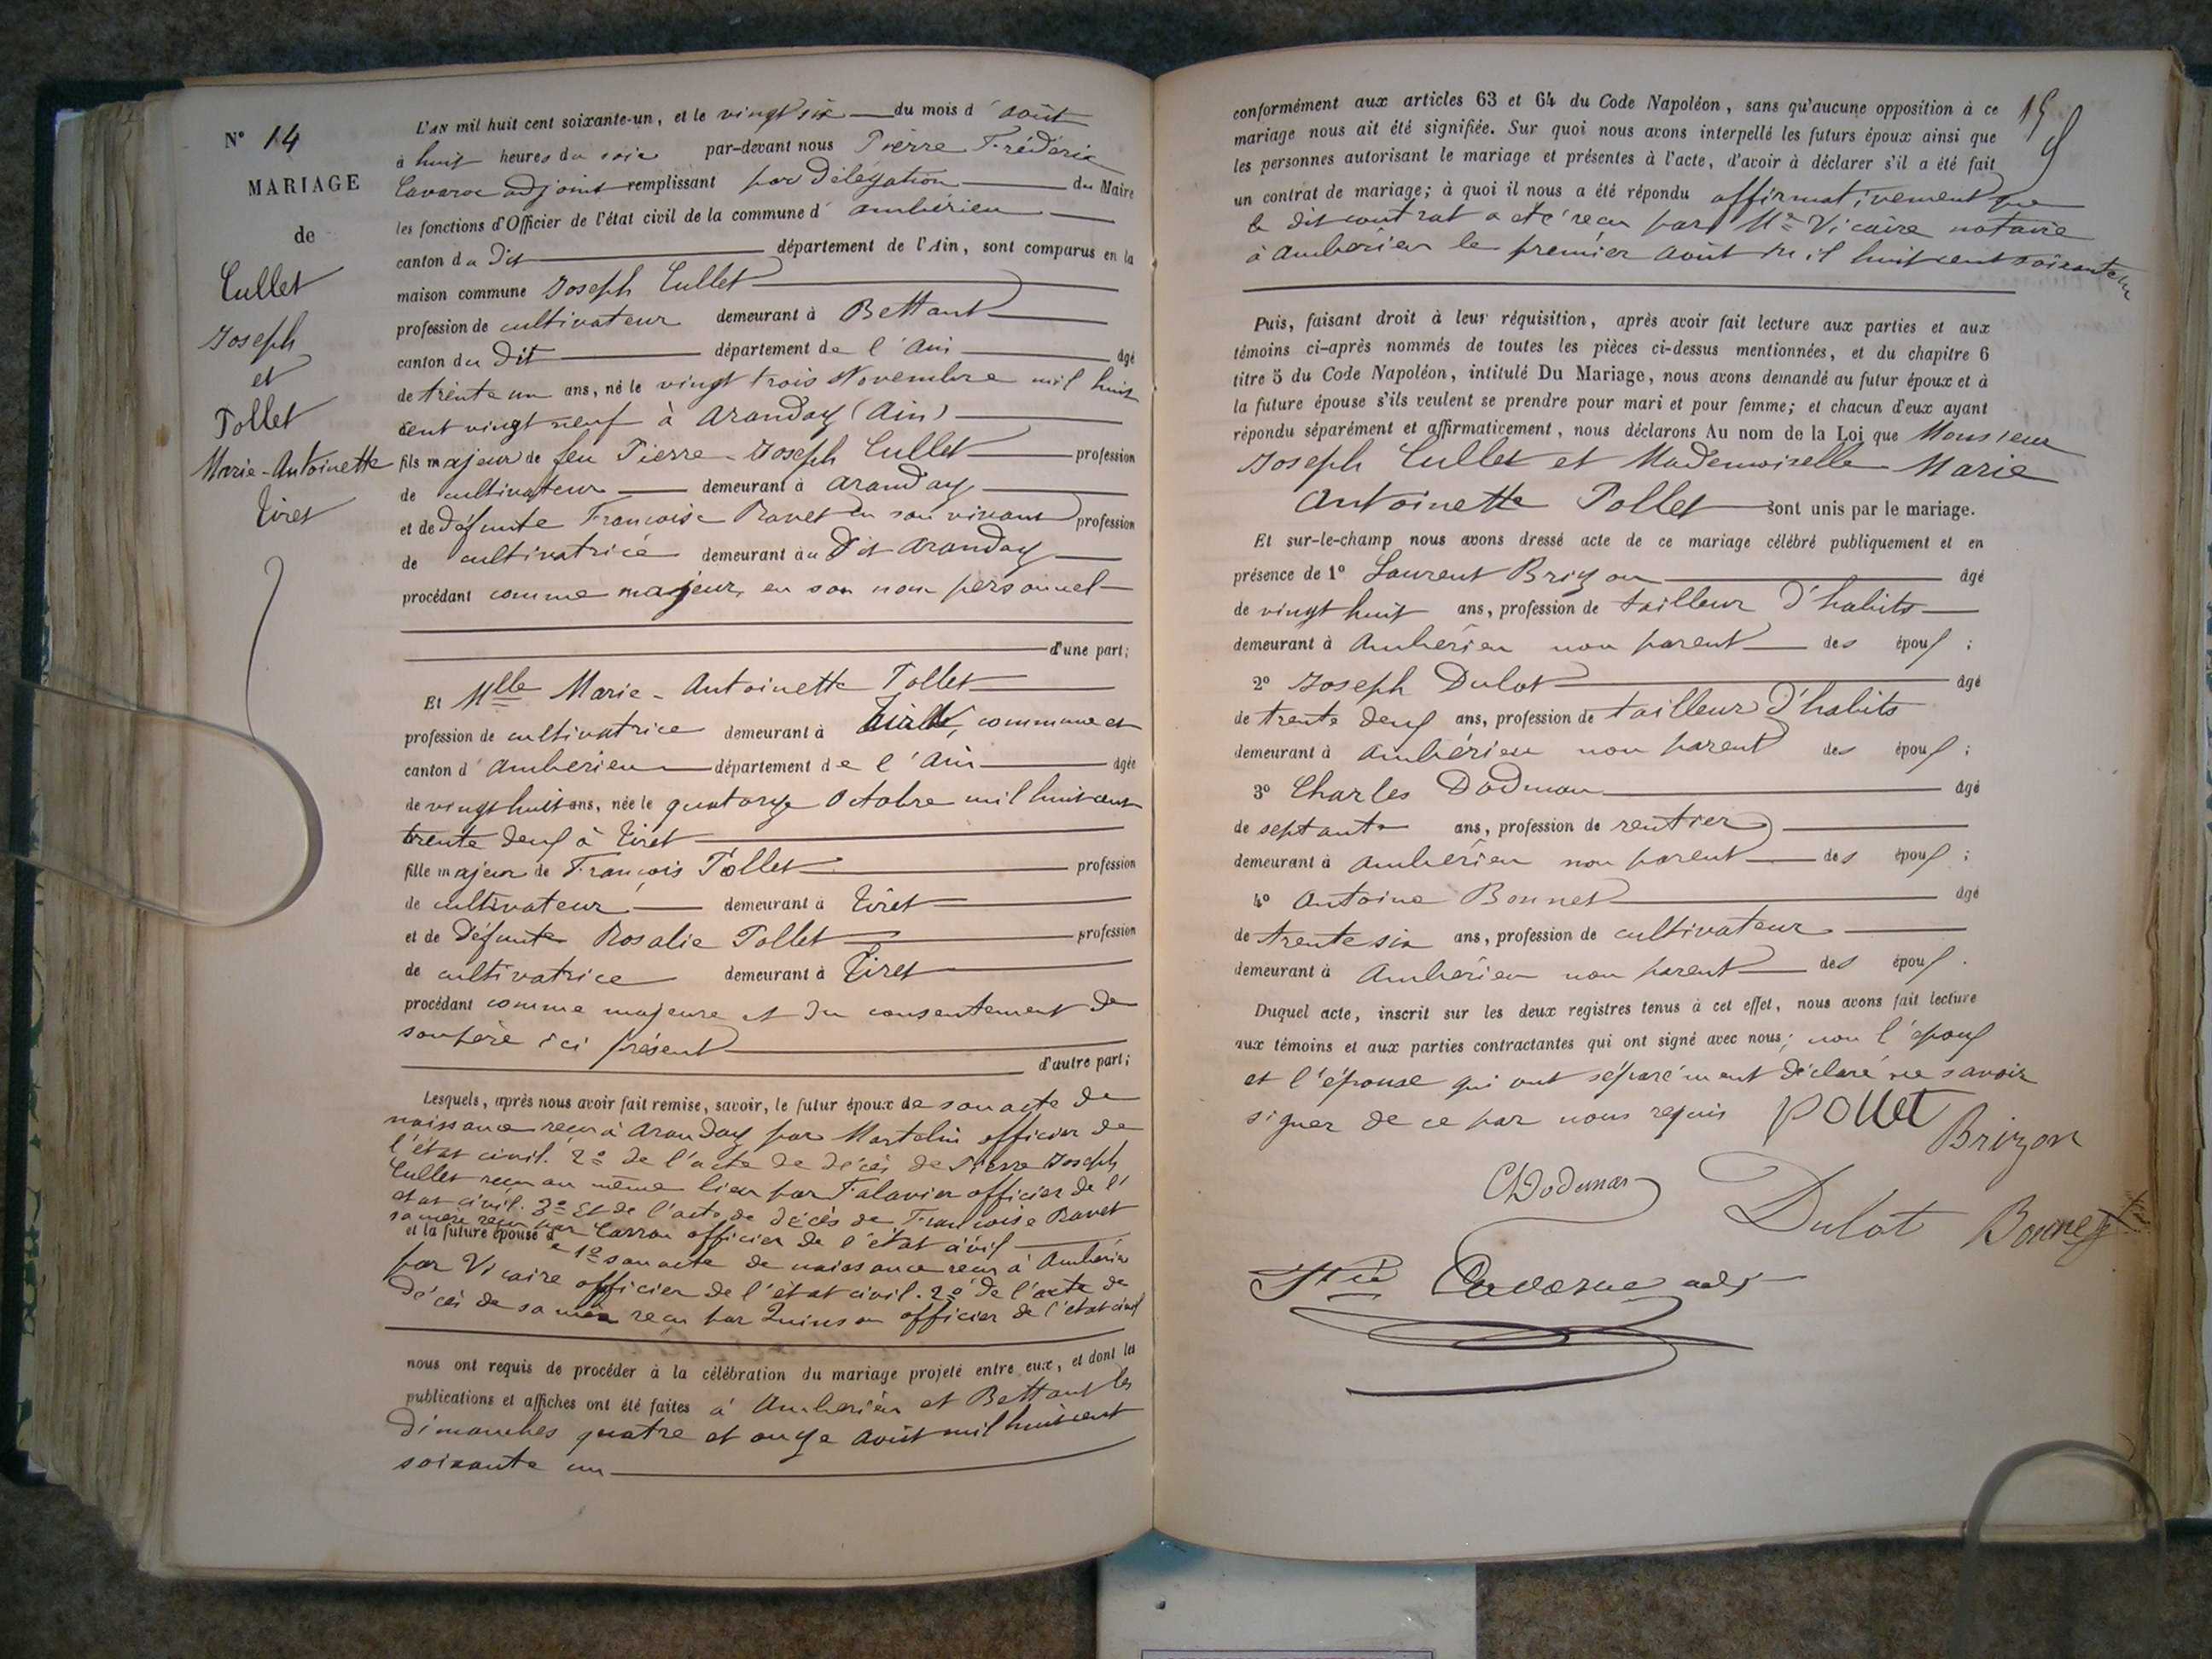 N° 14
MARIAGE
de
Cullet
Joseph
et
Pollet
Marie-Antoinette
Tiret
L'AN mil huit cent soixante-un, et le vingt six du mois d'août
à huit heures du soir par-devant nous Pierre Frédéric
adjoint remplissant par délégation du Maire
les fonctions d'Officier de l'état civil de la commune d'Ambérieu
canton du dit département de l'Ain, sont comparus en la
maison commune Joseph Cullet
profession de cultivateur demeurant à Bettant
canton du dit département de l'Ain âgé
de trente un ans, né le vingt trois Novembre mil huit
cent vingt neuf à Aranday (Ain)
fils majeur de feu Pierre-Joseph Cullet profession
de cultivateur demeurant à Aranday
et de défunte Françoise Ravet en son vivant profession
de cultivatrice demeurant au dit Aranday
procédant comme majeur, en son nom personnel
d'une part;
Et Mlle Marie-Antoinette Pollet
profession de cultivatrice demeurant à Tiret, commune et
canton d'Ambérieu département de l'Ain âgée
de vingt huit ans, née le quatorze Octobre mil huit cent
trente deux à Tiret
fille majeur de François Pollet profession
de cultivateur demeurant à Tiret
et de défunte Rosalie Pollet profession
de cultivatrice demeurant à Tiret
procédant comme majeure et du consentement de
son père ici présent
d'autre part;
Lesquels, après nous avoir fait remise, savoir, le futur époux de son acte de
naissance reçu à Aranday par Martelin officier de
l'état civil. 2° de l'acte de décès de Pierre Joseph
Cullet reçu au même lieu par Falavier officier de l'
état civil. 3° Et de l'acte de décès de Françoise Ravet
sa mère reçu par Carron officier de l'état civil
et la future épouse de 1° son acte de naissance reçu à Ambérieu
par Vicaire officier de l'état civil. 2° de l'acte de
décès de sa mère reçu par Quinson officier de l'état civil
nous ont requis de procéder à la célébration du mariage projeté entre eux, et dont les
publications et affiches ont été faites à Ambérieu et Bettant les
dimanches quatre et onze Août mil huit cent
soixante un
15
conformément aux articles 63 et 64 du Code Napoléon, sans qu'aucune opposition à ce
mariage nous ait été signifiée. Sur quoi nous avons interpellé les futurs époux ainsi que
les personnes autorisant le mariage et présentes à l'acte, d'avoir à déclarer s'il a été fait
un contrat de mariage; à quoi il nous a été répondu affirmativement que
le dit contrat a été reçu par Me Vicaire notaire
à Ambérieu le premier août mil huit cent soixante un
Puis, faisant droit à leur réquisition, après avoir fait lecture aux parties et aux
témoins ci-après nommés de toutes les pièces ci-dessus mentionnées, et du chapitre 6
titre 5 du Code Napoléon, intitulé Du Mariage, nous avons demandé au futur époux et à
la future épouse s'ils veulent se prendre pour mari et pour femme; et chacun d'eux ayant
répondu séparément et affirmativement, nous déclarons Au nom de la Loi que Monsieur
Joseph Cullet et Mademoiselle Marie
Antoinette Pollet sont unis par le mariage.
Et sur-le-champ nous avons dressé acte de ce mariage célébré publiquement et en
présence de 1° Laurent Brizon âgé
de vingt huit ans, profession de tailleur d'habits
demeurant à Ambérieu non parent des époux;
2° Joseph Dulot âgé
de trente deux ans, profession de tailleur d'habits
demeurant à Ambérieu non parent des époux;
3° Charles Dodman âgé
de septante ans, profession de rentier
demeurant à Ambérieu non parent des époux;
4° Antoine Bonnet âgé
de trente six ans, profession de cultivateur
demeurant à Ambérieu non parent des époux.
Duquel acte, inscrit sur les deux registres tenus à cet effet, nous avons fait lecture
aux témoins et aux parties contractantes qui ont signé avec nous; non l'époux
et l'épouse qui ont séparément déclaré ne savoir
signer de ce par nous requis Pollet
Brizon
Dulot Bonnet